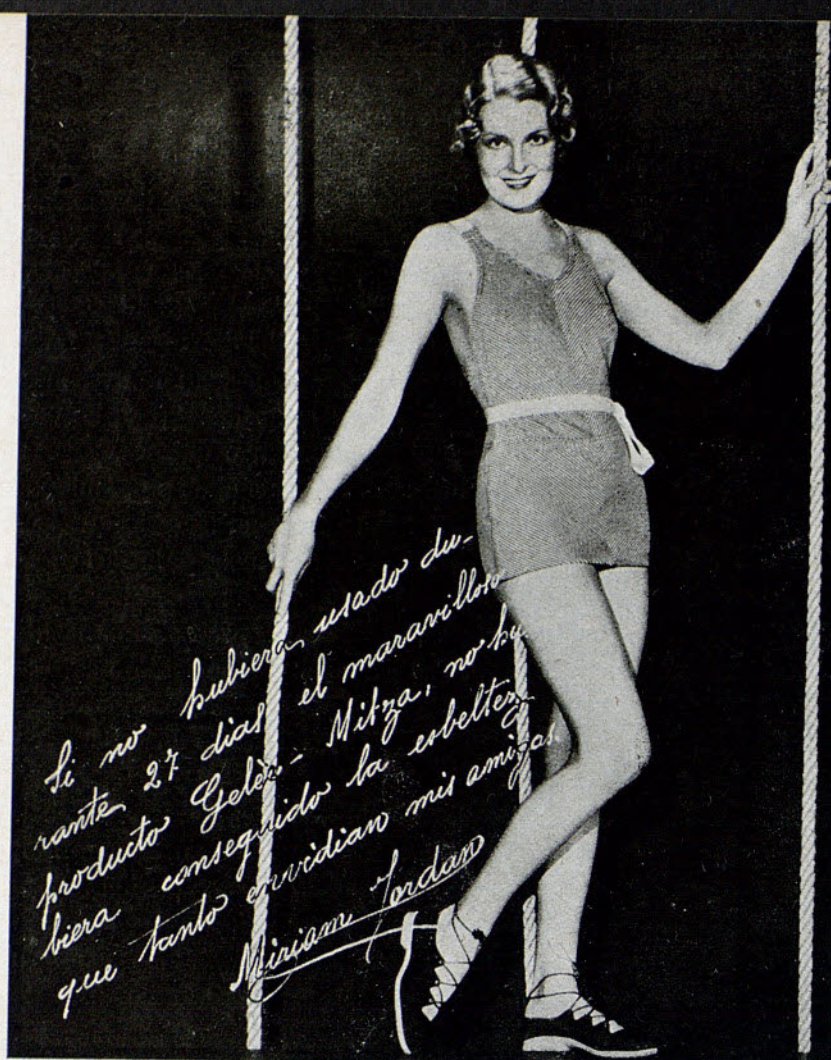 Si no hubiera usado du-
rante 27 dias el maravilloso
producto Gelée-Mitza, no hu
biera conseguido la esbeltez
que tanto envidian mis amigas
Miriam Jordan